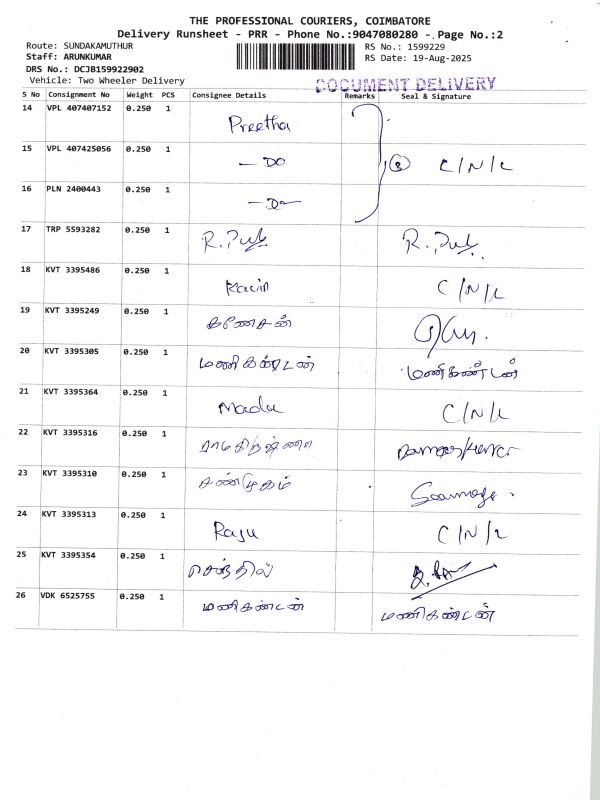 THE PROFESSIONAL COURIERS, COIMBATORE
Delivery Runsheet - PRR - Phone No.:9047080280 - Page No.:2
Route: SUNDAKAMUTHUR
RS No.: 1599229
Staff: ARUNKUMAR
RS Date: 19-Aug-2025
DRS No.: DCJB159922902
Vehicle: Two Wheeler Delivery
DOCUMENT DELIVERY
S No Consignment No Weight PCS Consignee Details Remarks Seal & Signature
14 VPL 407407152 0.250 1 Preetha
15 VPL 407425056 0.250 1 — DO ③ C/N/L
16 PLN 2400443 0.250 1 — Do
17 TRP 5593282 0.250 1
18 KVT 3395486 0.250 1 Kavin C/N/L
19 KVT 3395249 0.250 1 கணேசன்
20 KVT 3395305 0.250 1 மணிகண்டன் மணிகண்டன்
21 KVT 3395364 0.250 1 Madhu C/N/L
22 KVT 3395316 0.250 1
23 KVT 3395310 0.250 1 சண்முகம்
24 KVT 3395313 0.250 1 Raju C/N/L
25 KVT 3395354 0.250 1 செந்தில்
26 VDK 6525755 0.250 1 மணிகண்டன் மணிகண்டன்